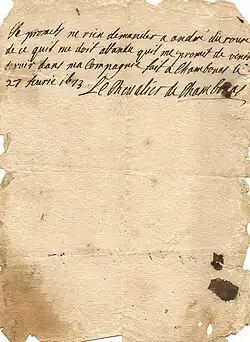 Je promets ne rien demander a andré du roure
de ce quil me doit attandu quil me promet de venir
servir dans ma Compagnie fait a Chambonas le
27 fevrie 1673 Le Chevalier de Chambonas